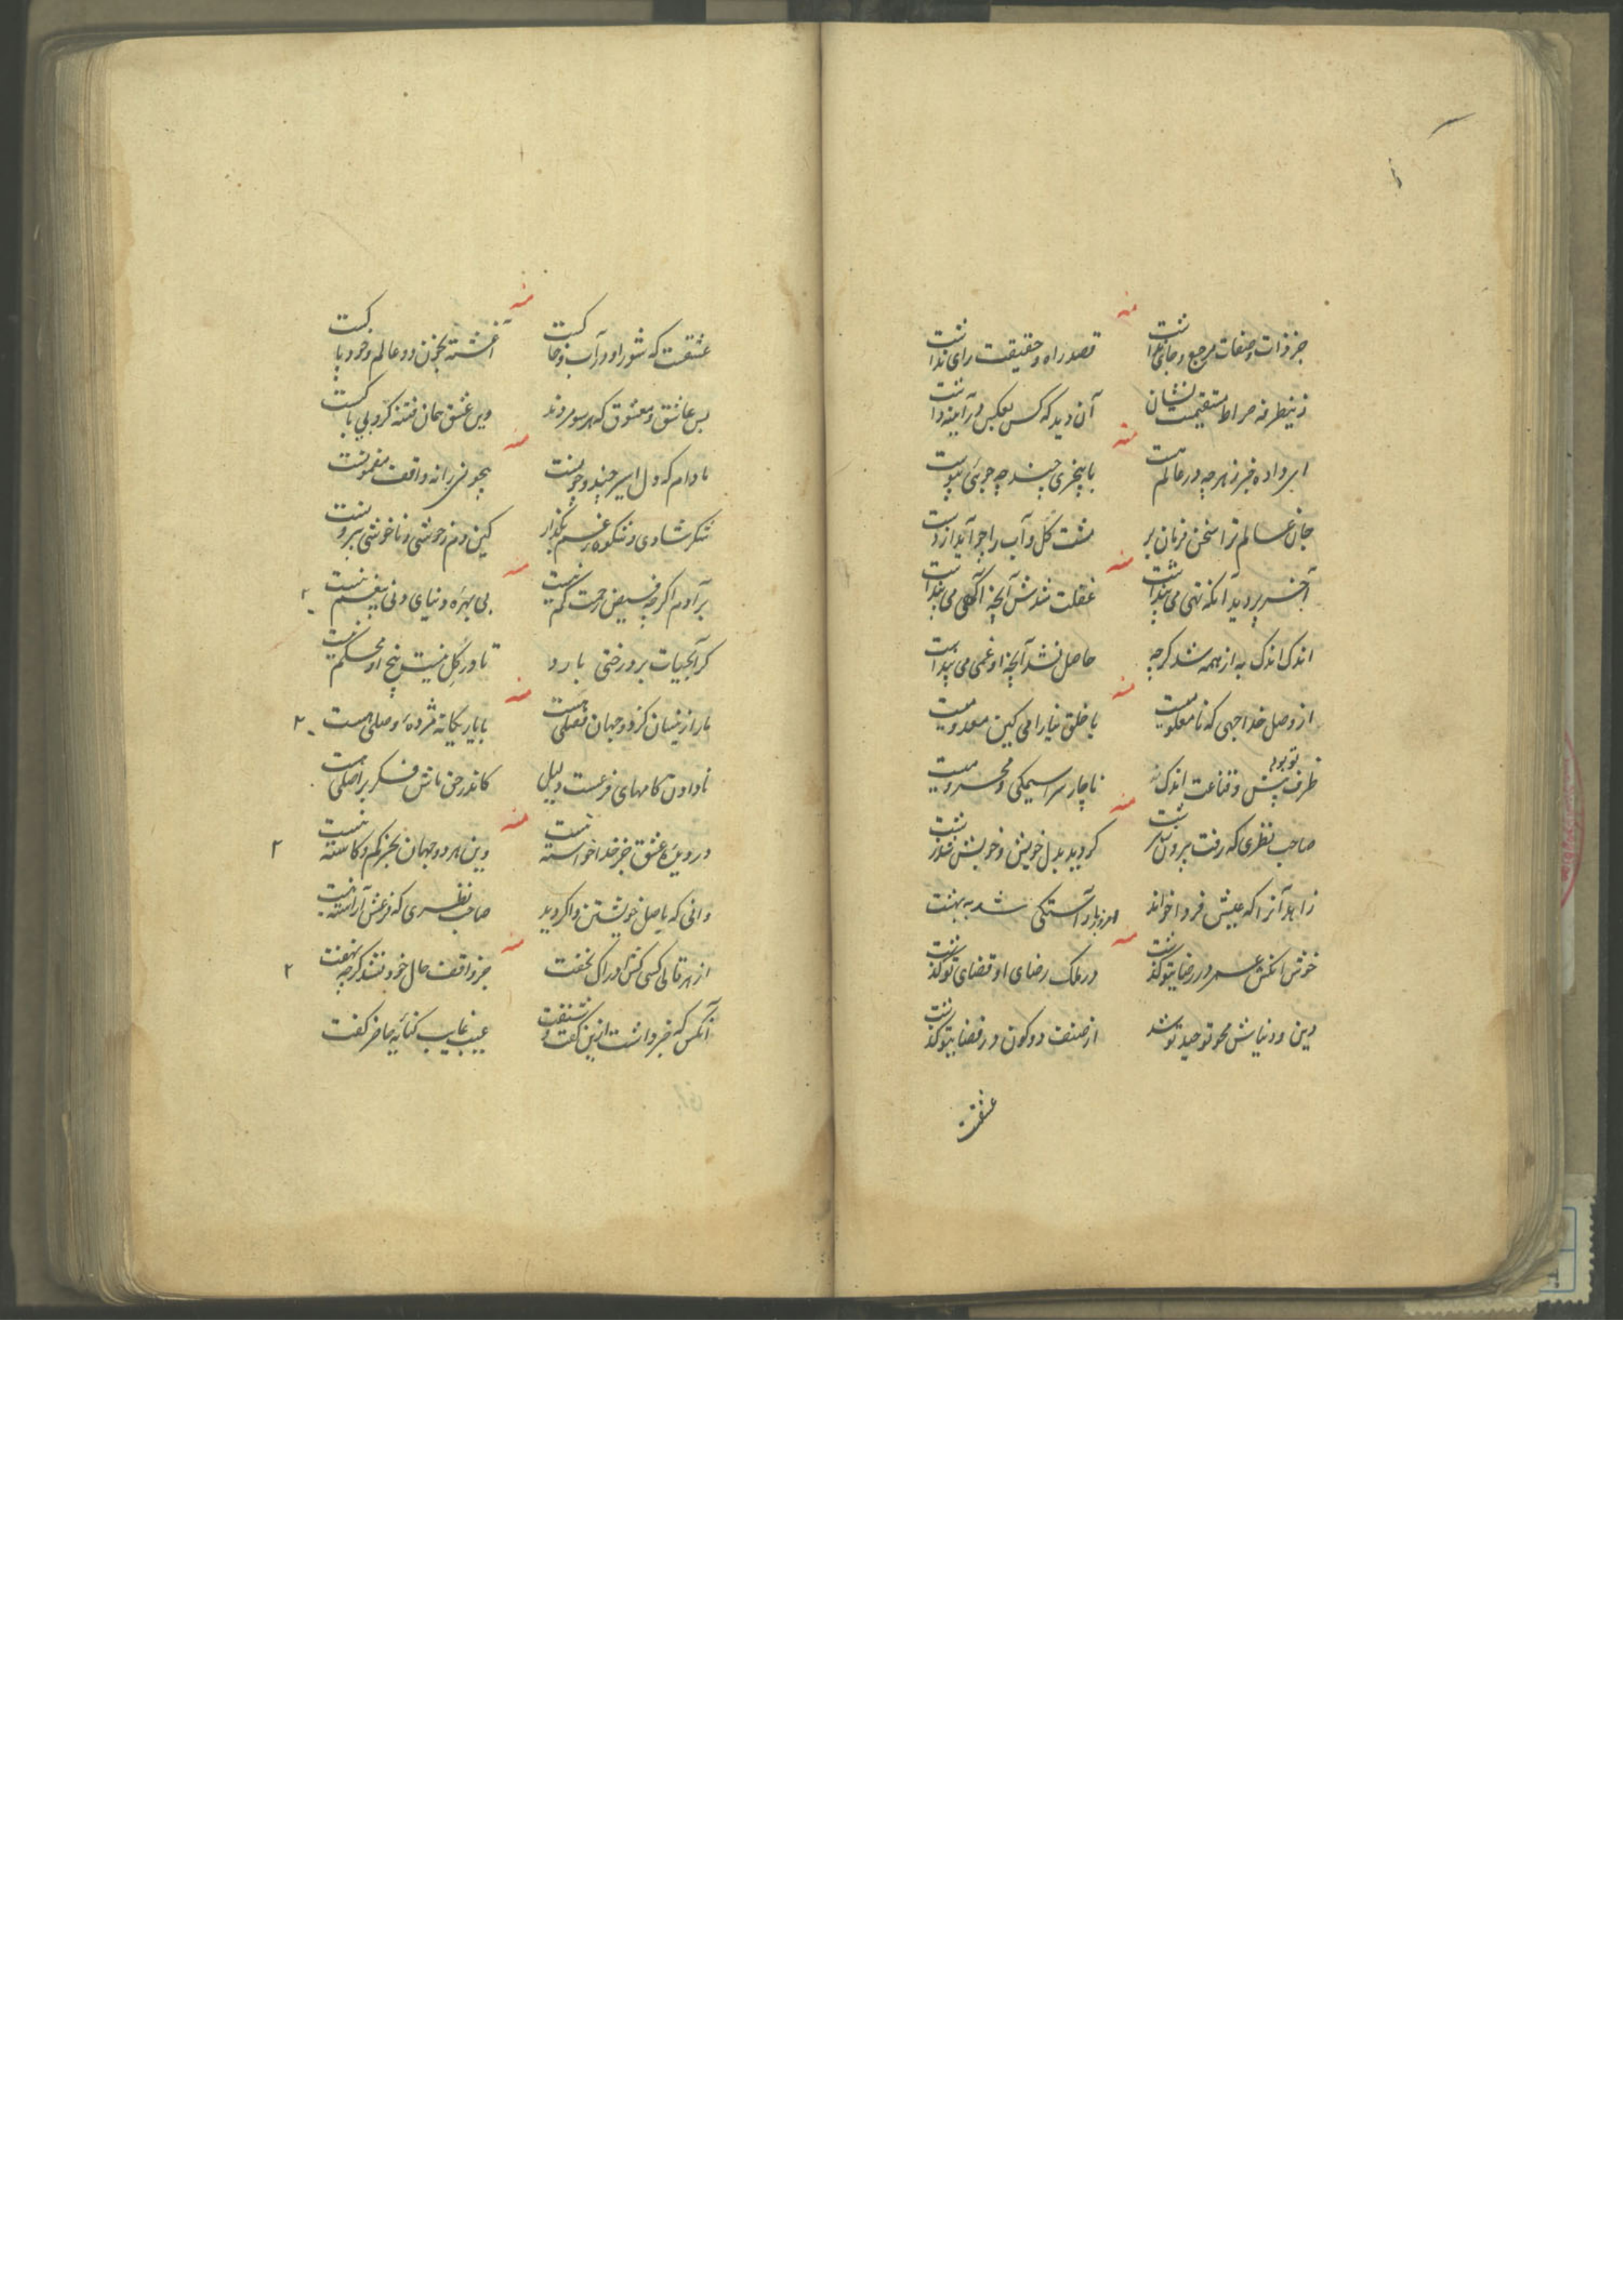 منه
جز ذات و صفات مرجع و جای نداشت قصد راه و حقیقت رای نداشت
زینطرفه صراط مستقیمت نشان آن دید که کس بعکس در آینه داشت
منه
ای داده خبر ز هرچه در عالم هست با بیخبری چند چه جوئی پیوست
جان عالم ترا سخن فرمان بر مشت گل و آب را چرا
منه
آخر پر دید آنکه تهی می پنداشت غفلت شدش آنچه آگهی می پنداشت
اندک اندک به از همه شد گرچه حاصل نشد آنچه او می پنداشت
منه
از وصل خدا جهی که نامعلومیست با خلق نیارامی کین معدومیست
ظرف تو بود پیش و قناعت اندک ناچار سراسیمگی و محرومیست
منه
صاحب نظری که رفت بیرون ز سرشت گردید بدل خویش و خویش
زاهد آنرا که عیش فردا خواند امروز باو آستگی شد به بهشت
منه
خوش آنکش عمر در رضای تو گذشت در ملک رضای او قضای تو گذشت
دین و دنیایش محو توحید تو شد از صنف دو کون در قضای تو گذشت
عشقت
منه
عشقت که شور او در آب و خاکست آغشته بخون دو عالم و خود پاکست
بس عاشق و معشوق که هر سو مردند وین عشق همان فتنه گر و بی باکست
منه
مادام که دل اسیر چند و چونست بیچونی را نه واقف مضمونست
شکر شادی و شکوه غم بگذار کین دم ز خوشی و ناخوشی بیرونست
منه
بر آدم اگرچه فیض رحمت کم نیست بی بهره دنیای دنی بیغم نیست ۲
گر آبحیات بر درختی بارد تا در گل نیست بیخ او محکم نیست
منه
ما را زینسان کز دو جهان فصلی هست با یار یگانه مژده وصلی هست ۲
نادادن کامهای فرعست دلیل کاندر حق ماش فکر بر اصلی هست
منه
در دین عشق جز خدا خواسته نیست وین هر دو جهان بجز کم و کاسته نیست ۲
دانی که باصل خویشتن واگردید صاحب نظری که فرعش آراسته نیست
منه
از هر قالی کسی کش ادراک نخفت جز واقف حال خود نشد گرچه نهفت ۲
آنکس که خبر داشت ازین گفت و شنفت عیب غایب کنایه حاضر گفت